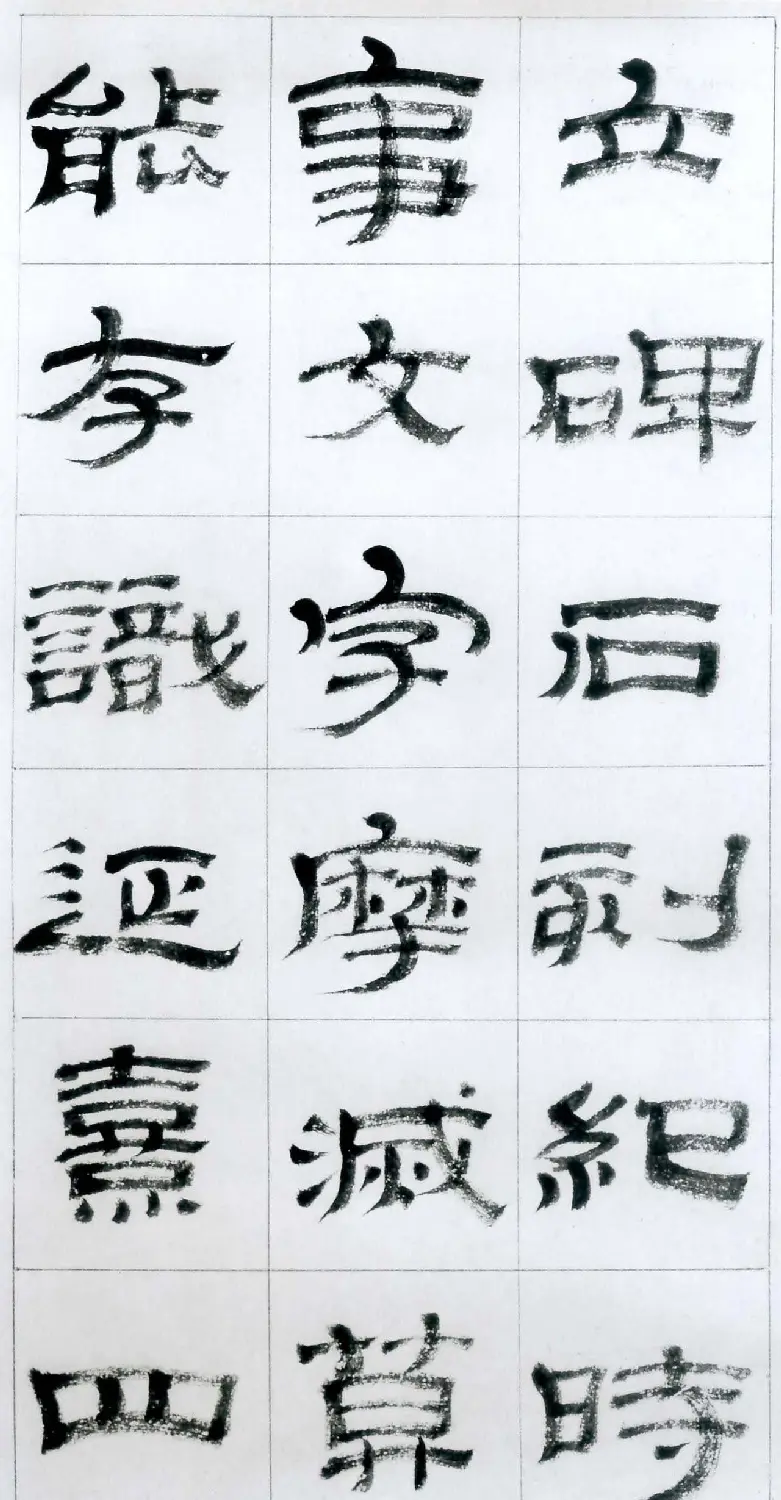 立碑石刻紀時
事文字摩滅莫
能存識延熹四